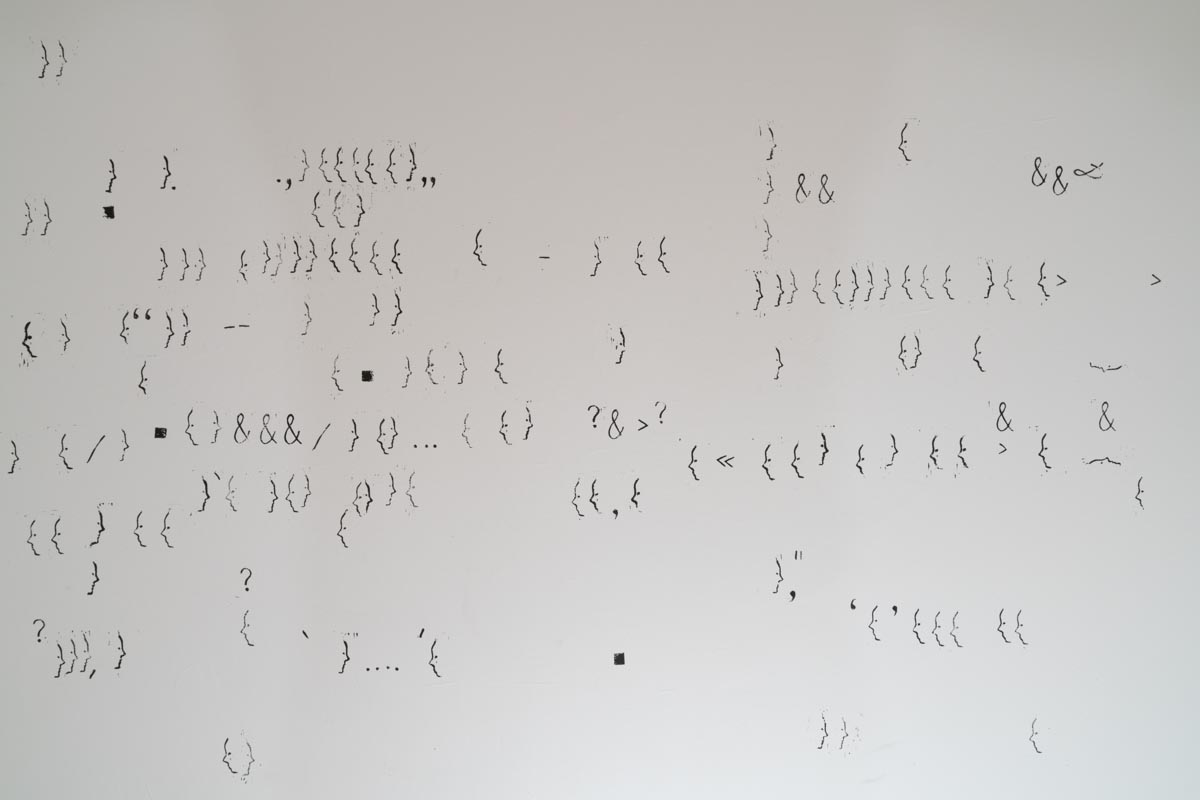 }} 
} {
} }. .,}{{{{{},,
} && &&∝
}} ■ {{}
}
}}} {}}}}{{{{ { - } {{
}}}{{}}}{{{ }{ {> >
{ } {“}} -- } }} }
{ { ■ }{} { } {} { ⏟
{}&&&/ } {}... { {} ?&>? & &
} {/} ■ { « {{} {} {{ > { ⏞
}`{ }{} {}}{ {{,{ {
{{ } {{ {
} ? },"
? { ‘{’{{{ {{
}}},} ` }".... '{ ■
}} {
{}